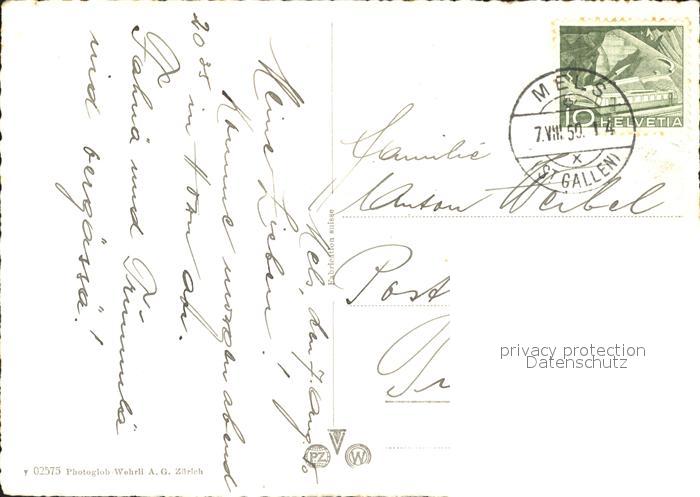 Mels, den 7. Aug. 50
Meine Lieben!
Komme morgen abend
20 35 in Horn an.
Fahna und Trummla
nid vergässa!
Familie
Anton Weibel
Post
MELS
7.VIII.50. 14
(ST GALLEN)
10 HELVETIA
Fabrication suisse
PZ
W
02575 Photoglob-Wehrli A. G. Zürich
privacy protection
Datenschutz